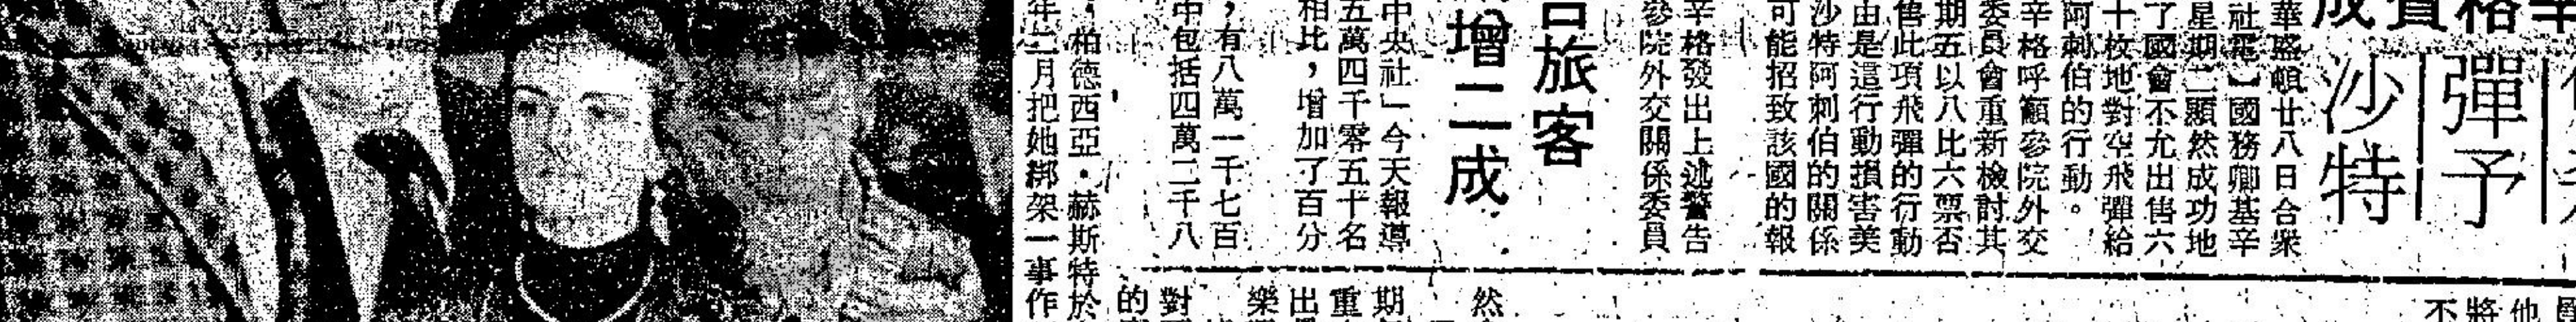 彈予
沙特
華盛頓廿八日合衆
社電】國務卿基辛
星期二顯然成功地
了國會不允出售六
十枚地對空飛彈給
阿刺伯的行動。
辛格呼籲參院外交
委員會重新檢討其
期五以八比六票否
售此項飛彈的行動
由是這行動損害美
沙特阿刺伯的關係
可能招致該國的報
辛格發出上述警告
參院外交關係委員
旅客
增二成
中央社」今天報導
五萬四千零五十名
相比，增加了百分
，有八萬一千七百
中包括四萬二千八
柏德西亞·赫斯特於
年二月把她綁架一事作
他
將
不
然
期
重
出
樂
對
的